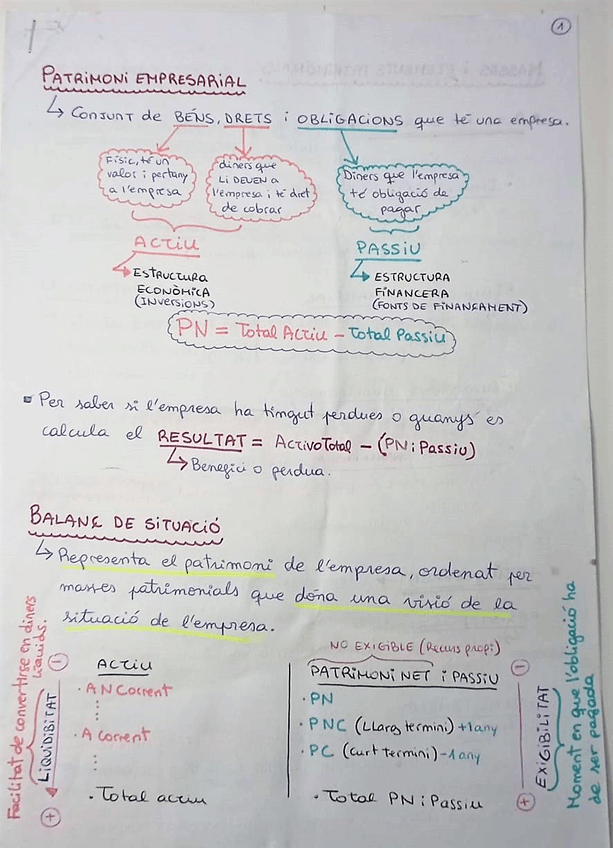 1
PATRIMONI EMPRESARIAL
↳ Conjunt de BÉNS, DRETS i OBLIGACIONS que té una empresa.
Físic, té un
valor i pertany
a l'empresa
diners que
li DEUEN a
l'empresa i té dret
de cobrar
Diners que l'empresa
té obligació de
pagar
ACTIU
PASSIU
ESTRUCTURA
ECONÒMICA
(INVERSIONS)
ESTRUCTURA
FINANCERA
(FONTS DE FINANÇAMENT)
PN = Total Actiu - Total Passiu
Per saber si l'empresa ha tingut perdues o guanys es
calcula el RESULTAT = Activo Total - (PN i Passiu)
↳ Benefici o perdua.
BALANÇ DE SITUACIÓ
↳ Representa el patrimoni de l'empresa, ordenat per
masses patrimonials que dóna una visió de la
situació de l'empresa.
Facilitat de convertirse en diners
líquids.
- LIQUIDIBITAT +
ACTIU
· A N Corrent
· A Corrent
· Total actiu
NO EXIGIBLE (Recurs propi)
PATRIMONI NET i PASSIU
· PN
· PNC (Llarg termini) +1 any
· PC (curt termini) -1 any
· Total PN i Passiu
- EXIGIBILITAT +
Moment en que l'obligació ha
de ser pagada